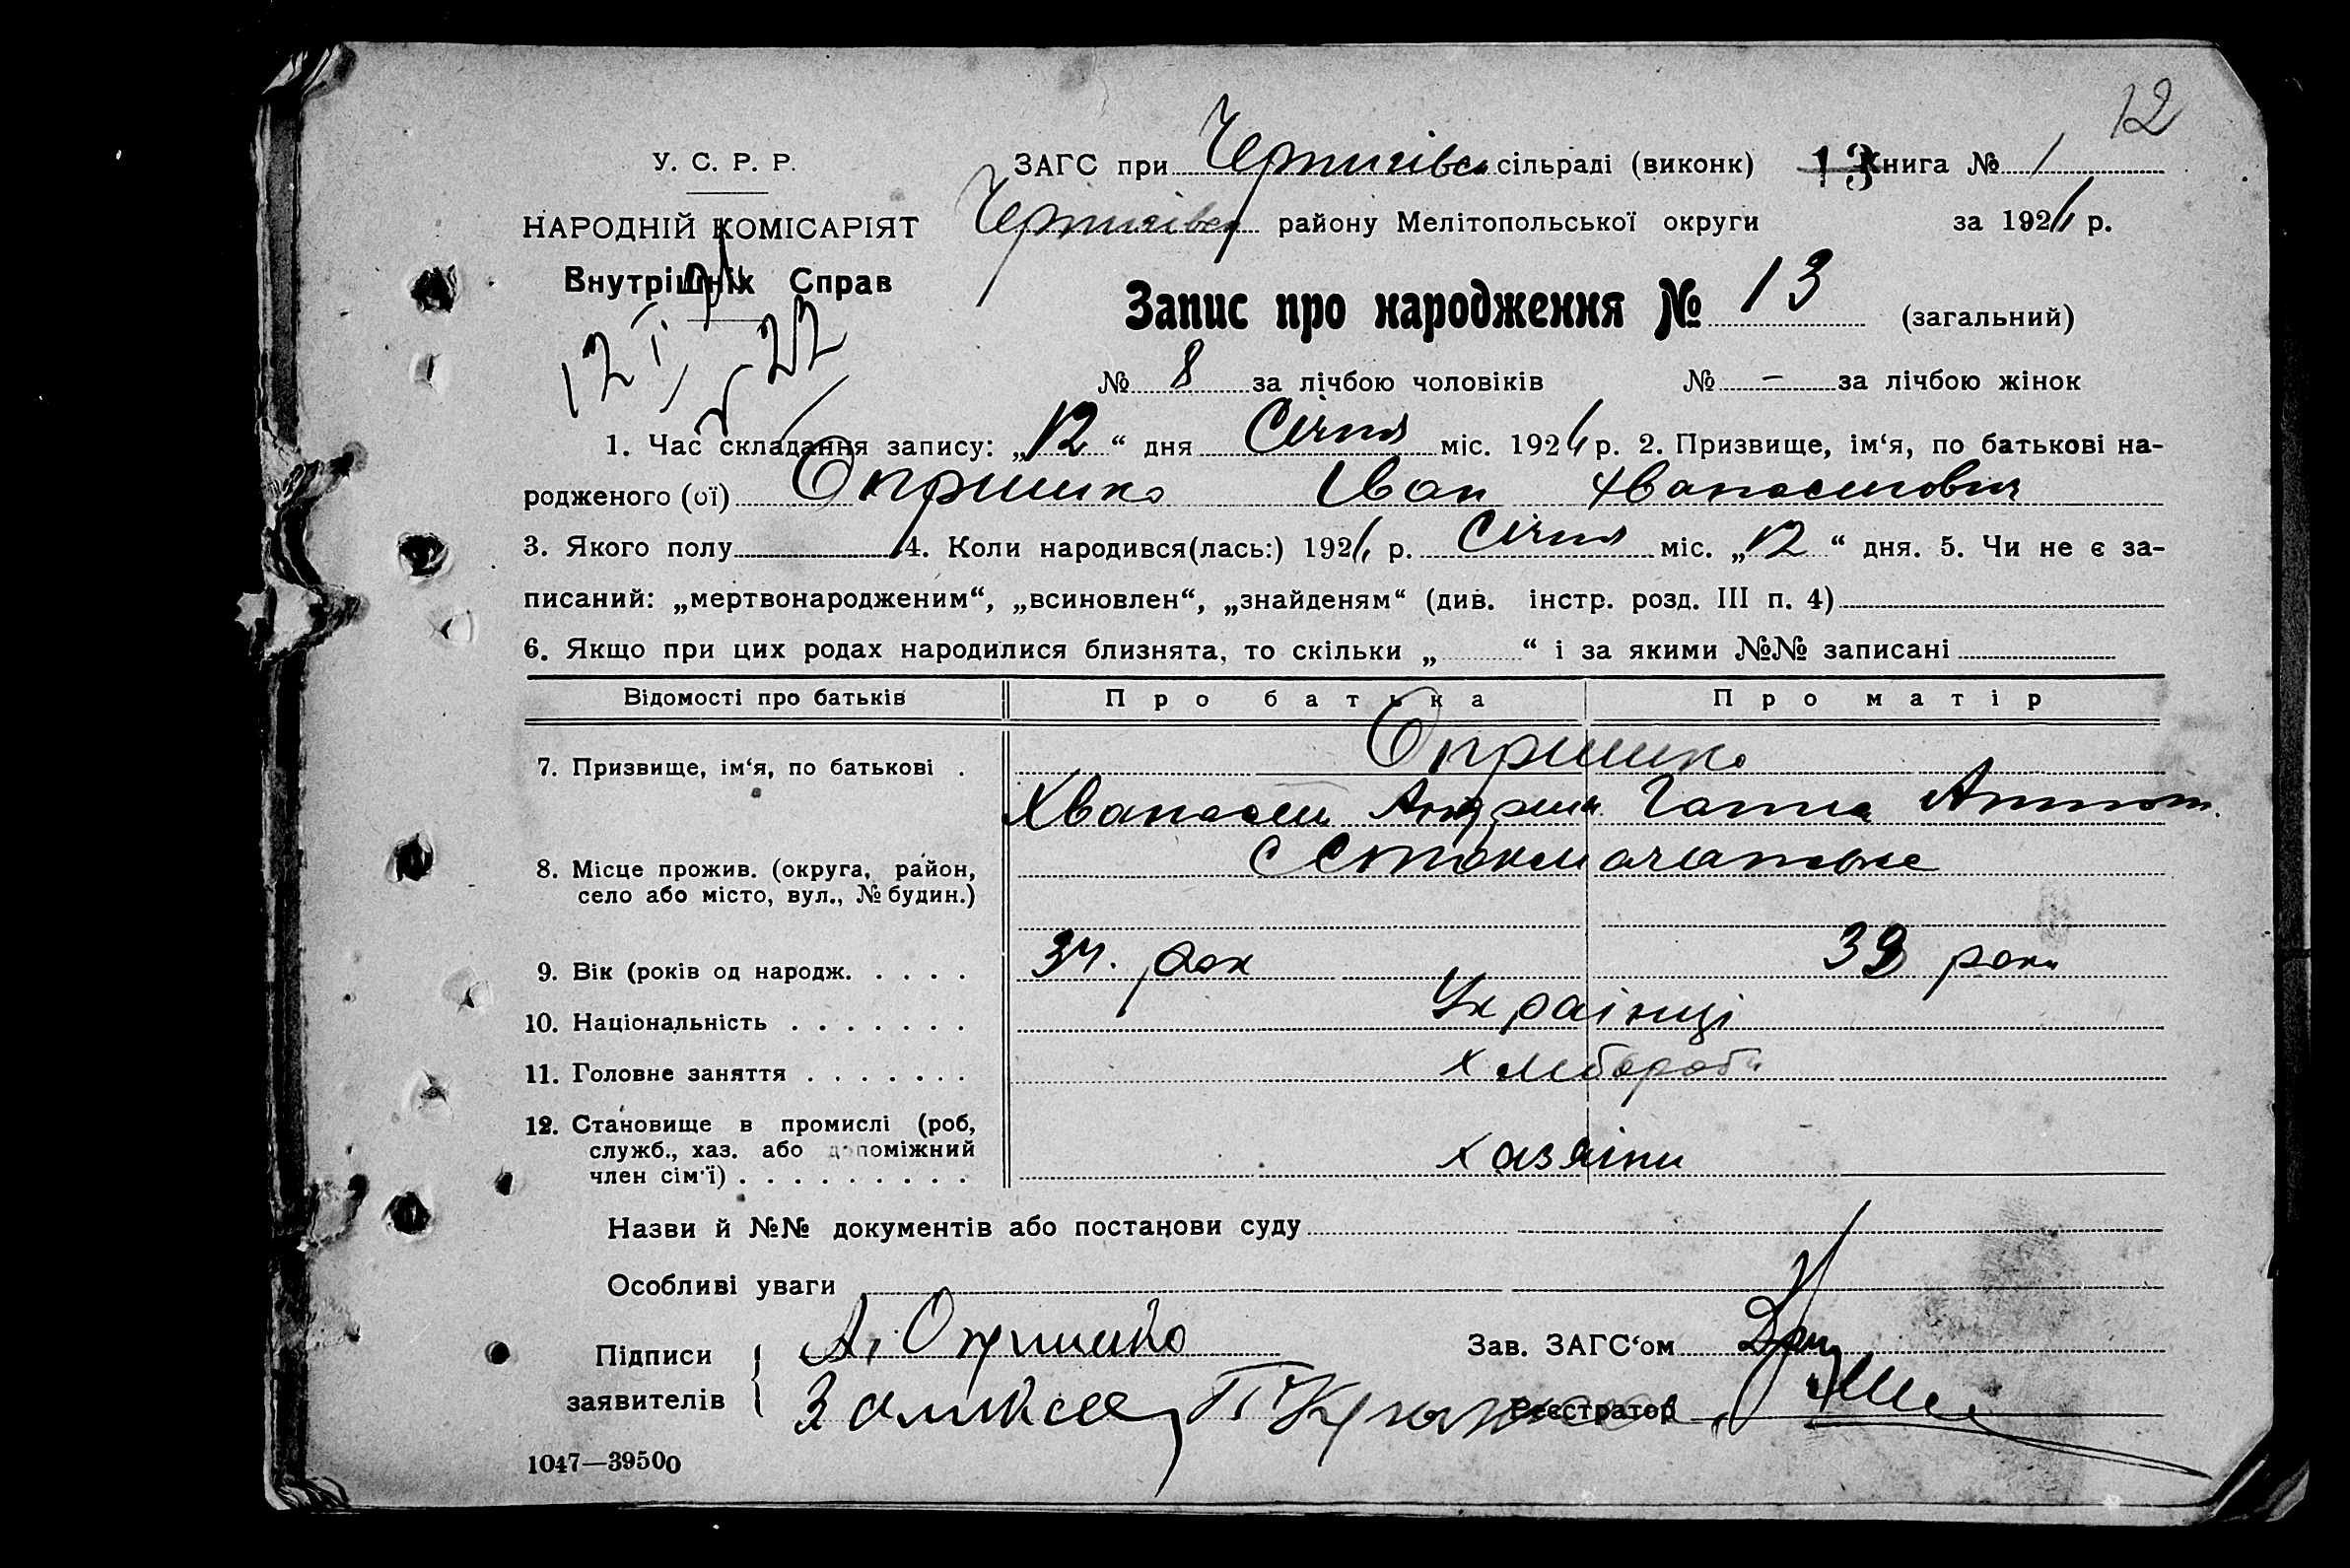 12
У. С. Р. Р.
ЗАГС при Чернигівск сільраді (виконк) 13 Книга № 1
НАРОДНІЙ КОМІСАРІЯТ
Чернигівск району Мелітопольської округи за 192 р.
Внутрішніх Справ
Запис про народження № 13 (загальний)
12
22
№ 8 за лічбою чоловіків № – за лічбою жінок
1. Час складання запису: „12“ дня Січня міс. 192 р. 2. Призвище, ім‘я, по батькові на-
родженого (ої) Опришко Іван Хванасиович
3. Якого полу 4. Коли народився(лась:) 192 р. Січня міс. „12“ дня. 5. Чи не є за-
писаний: „мертвонародженим“, „всиновлен“, „знайденям“ (див. інстр. розд. III п. 4)
6. Якщо при цих родах народилися близнята, то скільки „ “ і за якими №№ записані
Відомості про батьків Про батька Про матір
7. Призвище, ім‘я, по батькові . Опришко
Хванасий Андрии Ганна Антон.
8. Місце прожив. (округа, район, с
село або місто, вул., № будин.)
9. Вік (років од народж. . . . . 34. рок 33 роки
10. Національність . . . . . . . Українці
11. Головне заняття . . . . . . . Хлібороби
12. Становище в промислі (роб,
служб., хаз. або допоміжний Хазяіни
член сім‘ї) . . . . . . . . .
Назви й №№ документів або постанови суду
Особливі уваги
Підписи А. Опришко Зав. ЗАГС‘ом
заявителів Реєстратор
1047—39500